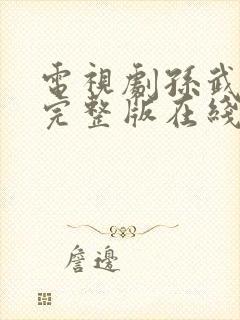 電視劇孫武
完整版在綫
詹邊